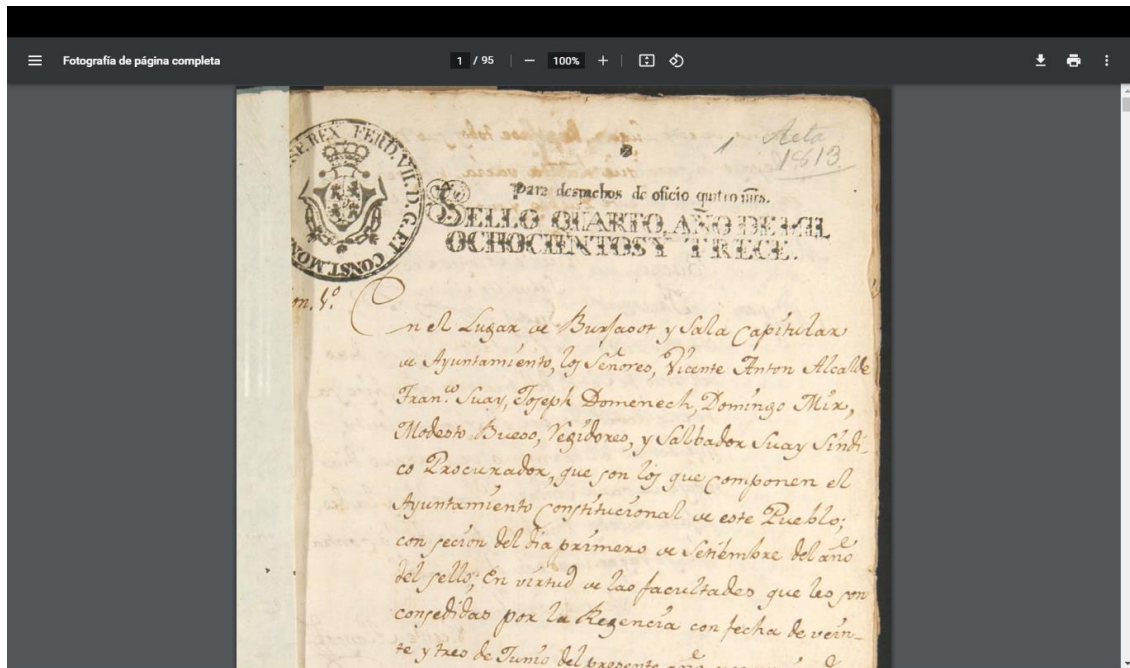 Fotografía de página completa
1 / 95
100%
Acta
1813
1
HISP. REX. FERD. VII. D. G. ET CONST. MON.
Para despachos de oficio quatro mrs.
SELLO QUARTO, AÑO DE MIL
OCHOCIENTOS Y TRECE.
En el Lugar de Burjasot y Sala Capitular
de Ayuntamiento, los Señores, Vicente Anton Alcalde
Fran.co Suay, Joseph Domenech, Domingo Mir,
Modesto Bueso, Regidores, y Salbador Suay Sindi-
co Procurador, que son los que componen el
Ayuntamiento Constitucional de este Pueblo;
con secion del dia primero de Setiembre del año
del sello; En virtud de las facultades que les son
consedidas por la Regencia con fecha de vein-
te y tres de Junio del presente año